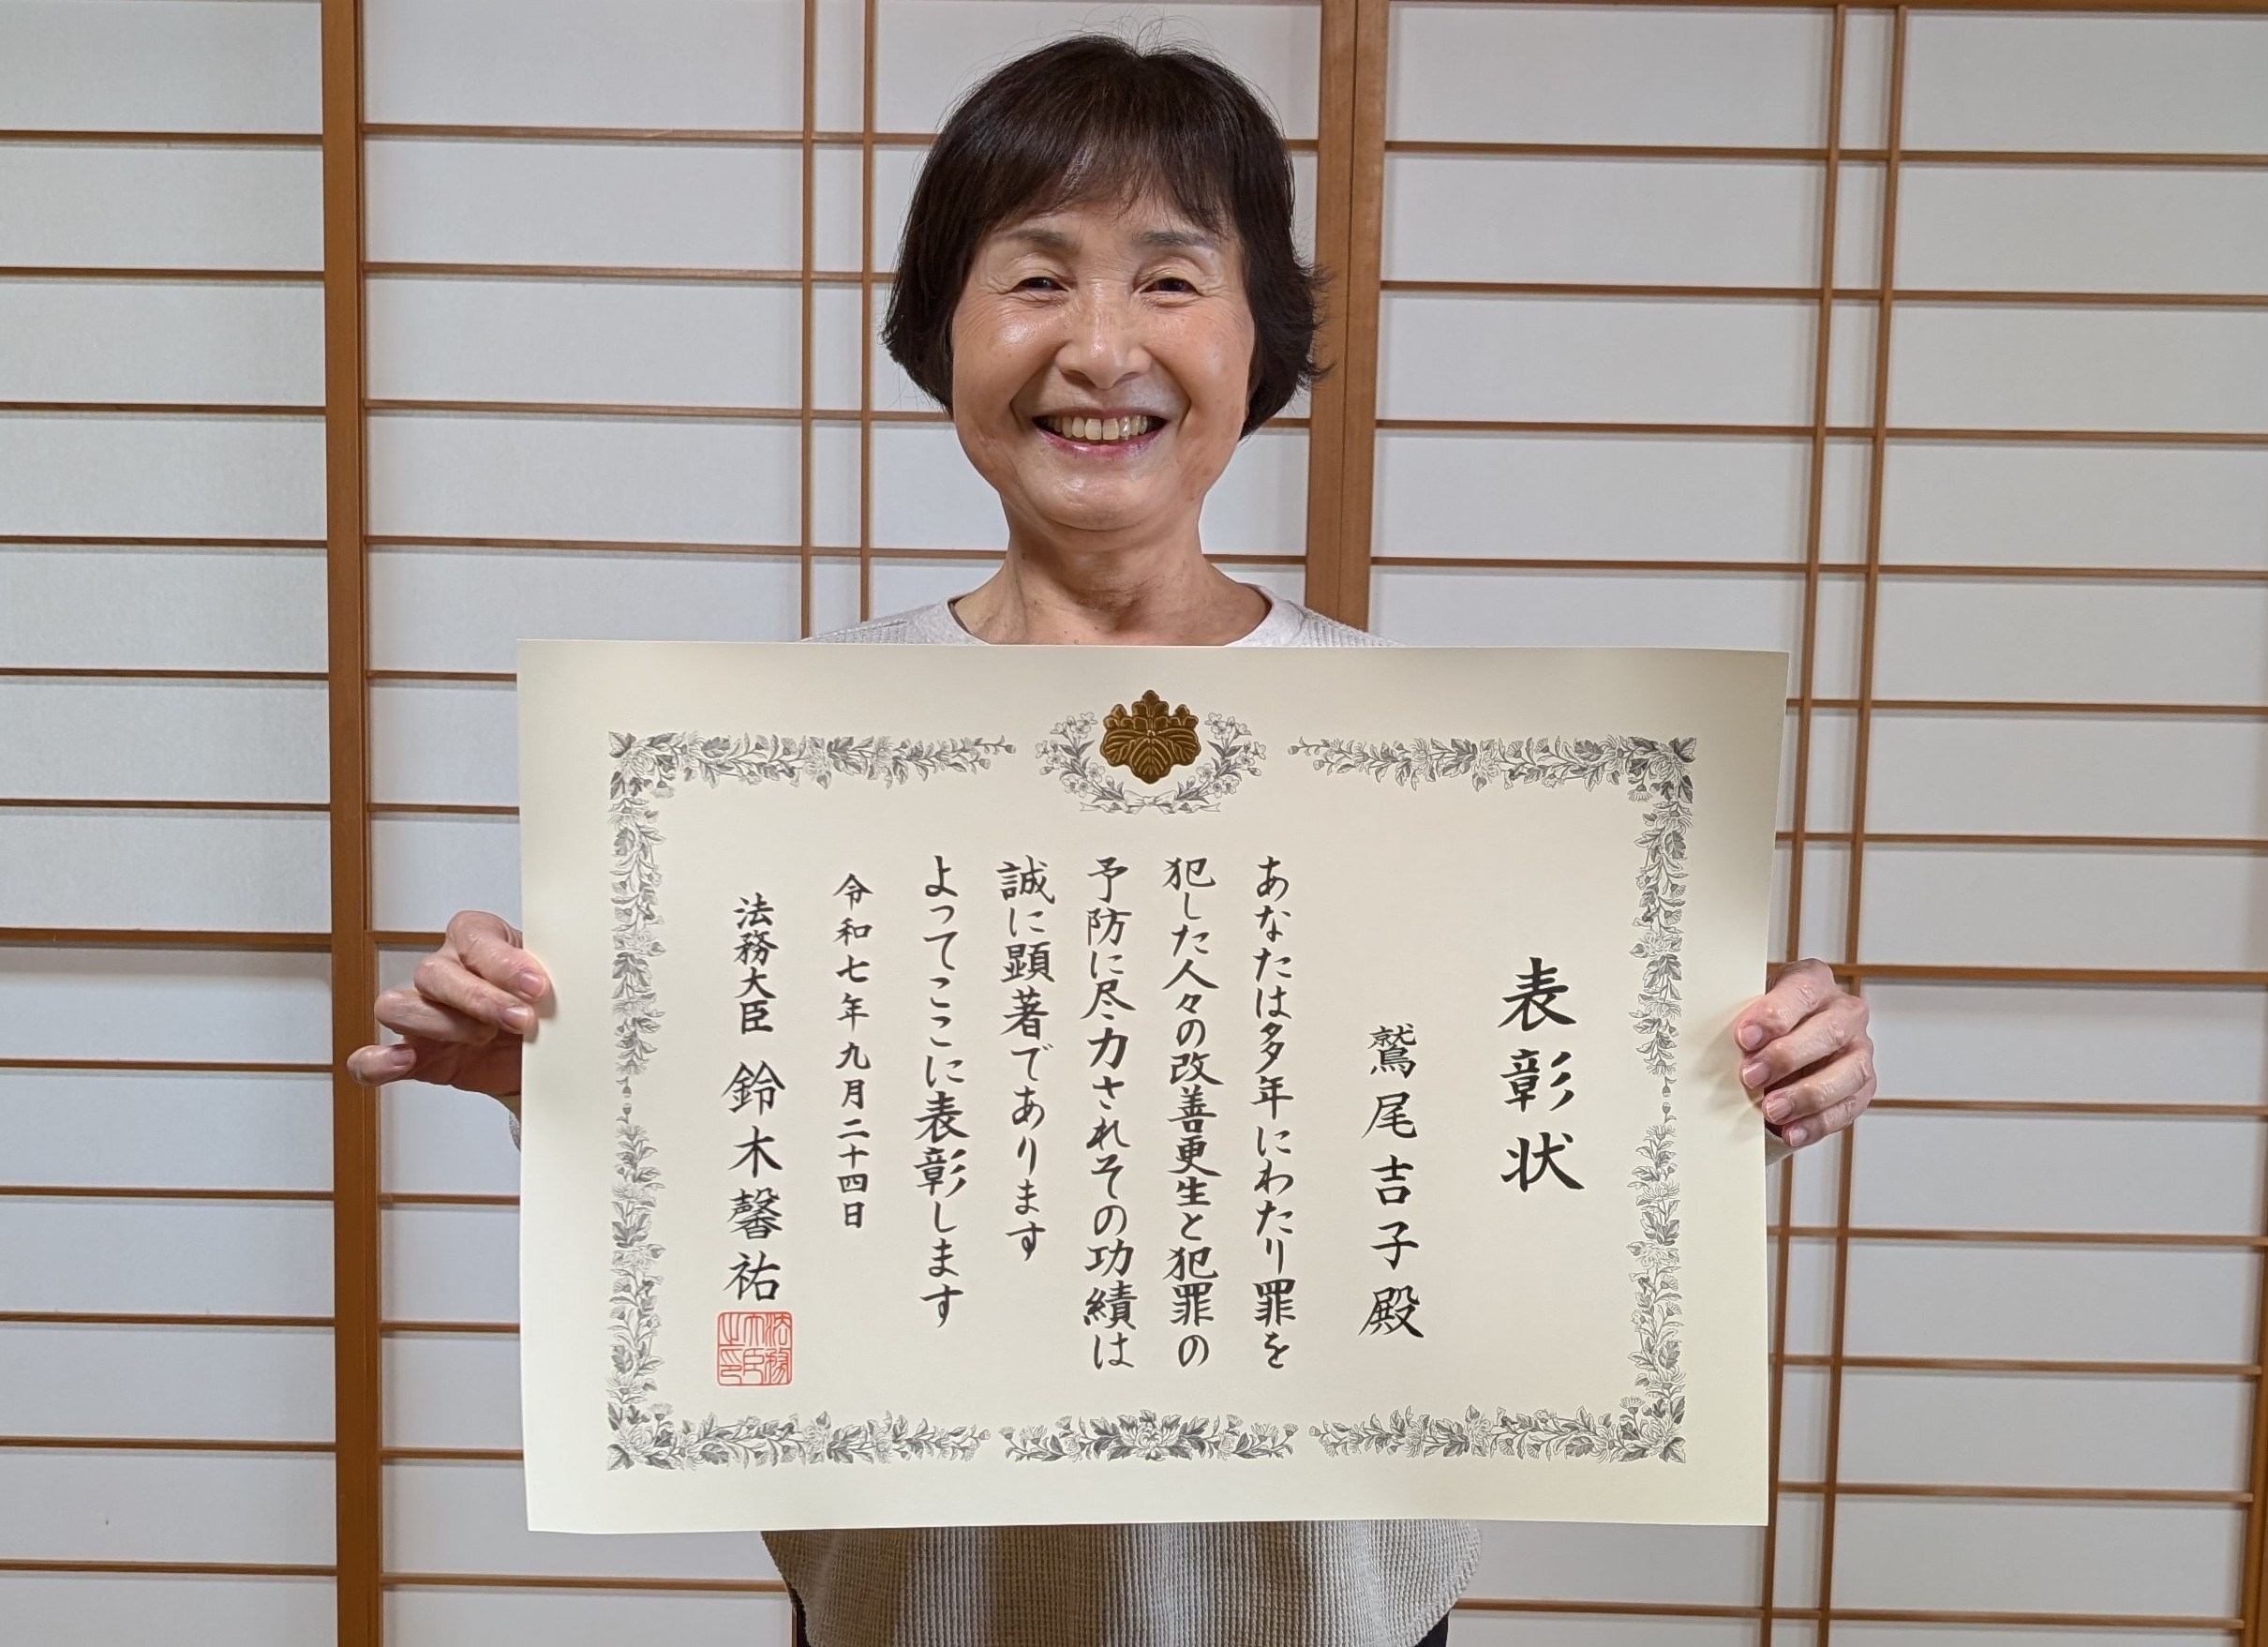 表彰状
鷲尾吉子殿
あなたは多年にわたり罪を
犯した人々の改善更生と犯罪の
予防に尽力されその功績は
誠に顕著であります
よってここに表彰します
令和七年九月二十四日
法務大臣 鈴木馨祐
法務大臣之印